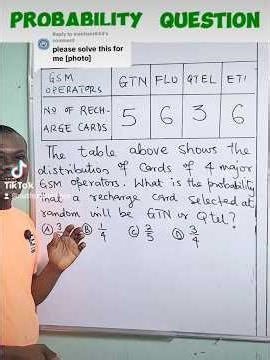 PROBABILITY QUESTION
Reply to
comment
please solve this for
me [photo]
GSM OPERATORS GTN FLO QTEL ETI
NO OF RECHARGE CARDS 5 6 3 6
The table above shows the
distribution of Cards of 4 major
GSM operators. What is the probability
that a recharge card selected at
random will be GTN or Qtel?
Ⓐ 3 Ⓑ 1/4 Ⓒ 2/5 Ⓓ 3/4
TikTok